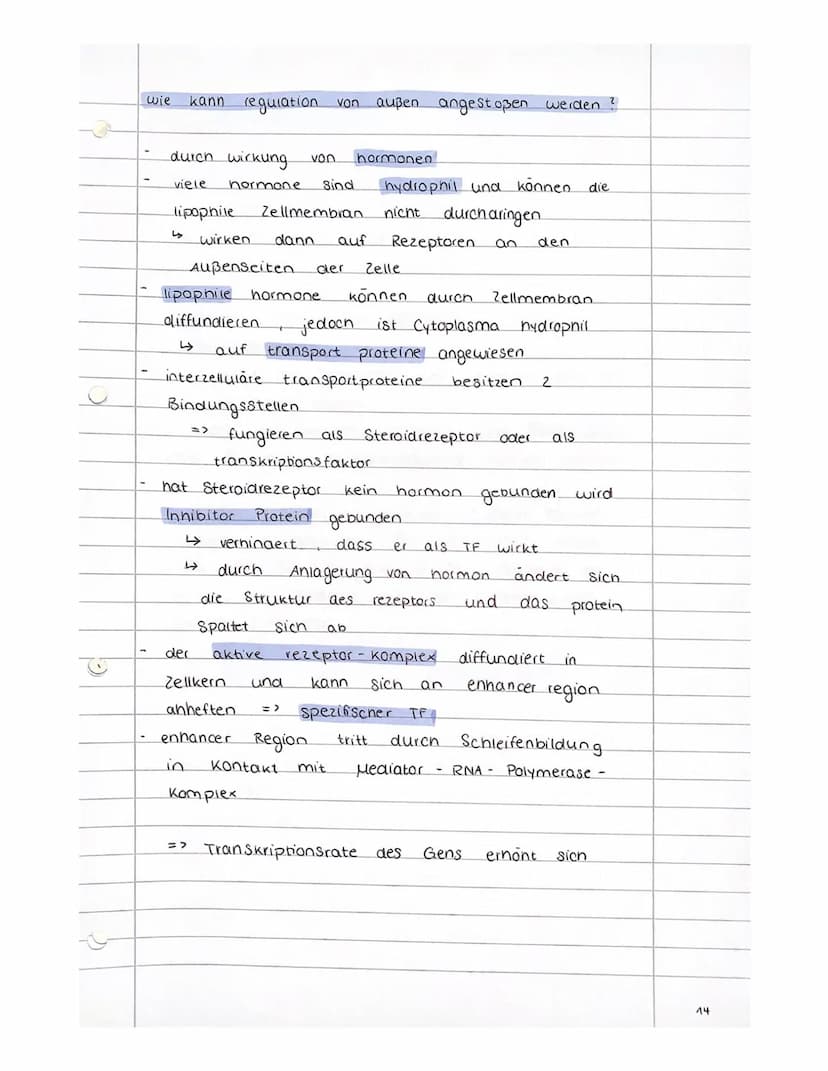 wie kann regulation von außen angestoßen werden?
- durch wirkung von hormonen
- viele hormone sind hydrophil und können die
lipophile Zellmembran nicht durchdringen
↳ wirken dann auf Rezeptoren an den
Außenseiten der Zelle
- lipophile hormone können durch Zellmembran
diffundieren, jedoch ist Cytoplasma hydrophil
↳ auf transport proteine angewiesen
- interzelluläre transportproteine besitzen 2
Bindungsstellen
=> fungieren als Steroidrezeptor oder als
transkriptionsfaktor
- hat Steroidrezeptor kein hormon gebunden wird
Inhibitor Protein gebunden
↳ verhindert, dass er als TF wirkt
↳ durch Anlagerung von hormon ändert sich
die Struktur des rezeptors und das protein
spaltet sich ab
- der aktive rezeptor-Komplex diffundiert in
Zellkern und kann sich an enhancer region
anheften => spezifischer TF
- enhancer Region tritt durch Schleifenbildung
in Kontakt mit Mediator - RNA - Polymerase -
Komplex
=> Transkriptionsrate des Gens erhöht sich
14